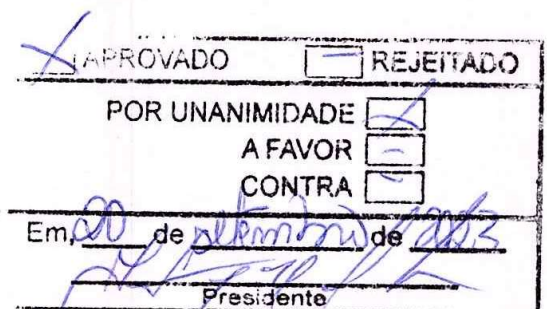 APROVADO REJEITADO
POR UNANIMIDADE
A FAVOR
CONTRA
Em, 20 de setembro de
Presidente